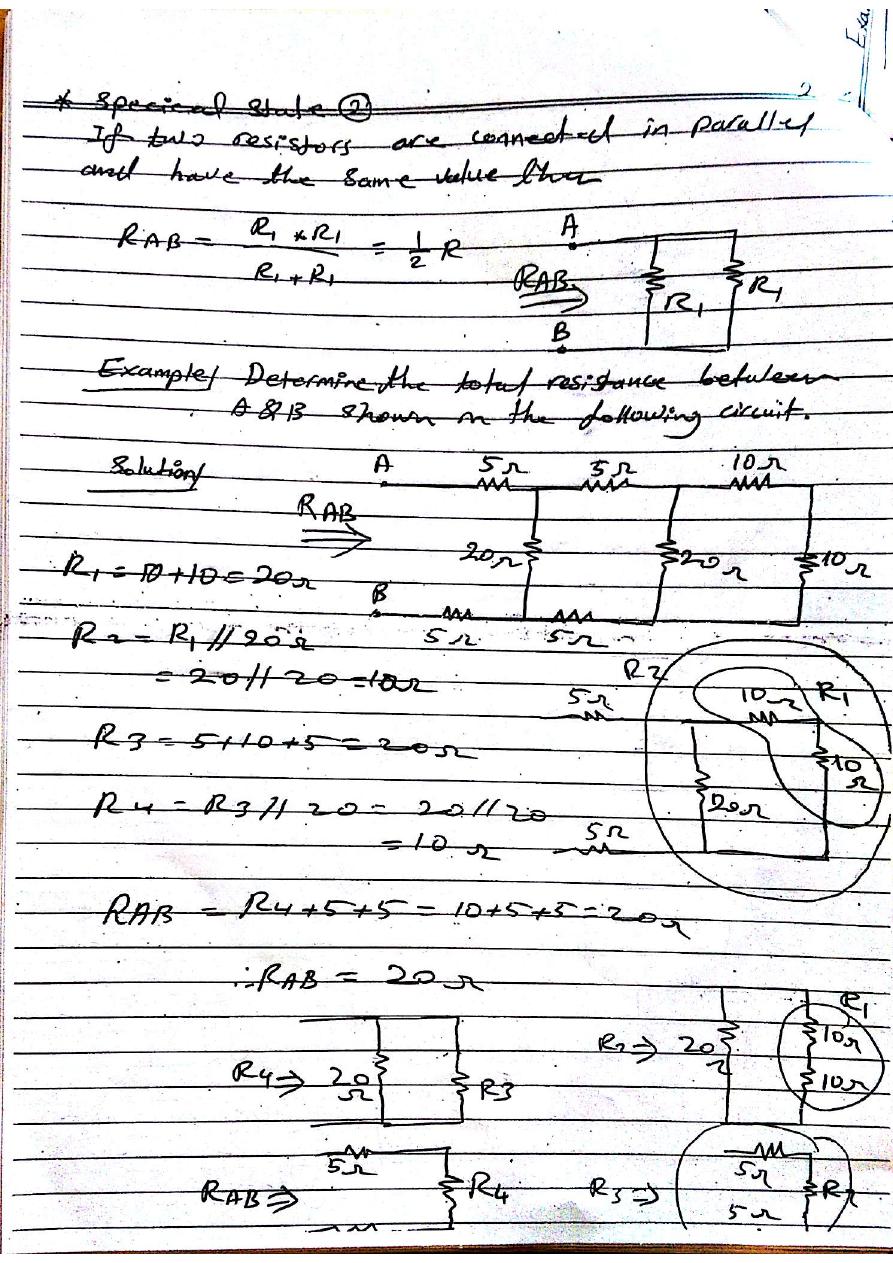 Exa
2
* Specieal State ②
If two resistors are connected in parallel
and have the same value then
RAB = R1 * R1 / R1 + R1 = 1/2 R
A
RAB
R1
R1
B
Example/ Determine the total resistance between
A & B shown in the following circuit.
Solution/
A
5Ω
5Ω
10Ω
RAB
20Ω
20Ω
10Ω
B
5Ω
5Ω
R1 = 10+10 = 20Ω
R2 = R1 // 20Ω
= 20 // 20 = 10Ω
R2
5Ω
10Ω
R1
10Ω
20Ω
5Ω
R3 = 5+10+5 = 20Ω
R4 = R3 // 20 = 20 // 20
= 10 Ω
RAB = R4+5+5 = 10+5+5 = 20Ω
∴ RAB = 20 Ω
R4 ⇒ 20Ω
R3
R2 ⇒ 20Ω
R1
10Ω
10Ω
RAB ⇒
5Ω
R4
R3 ⇒
5Ω
R2
5Ω